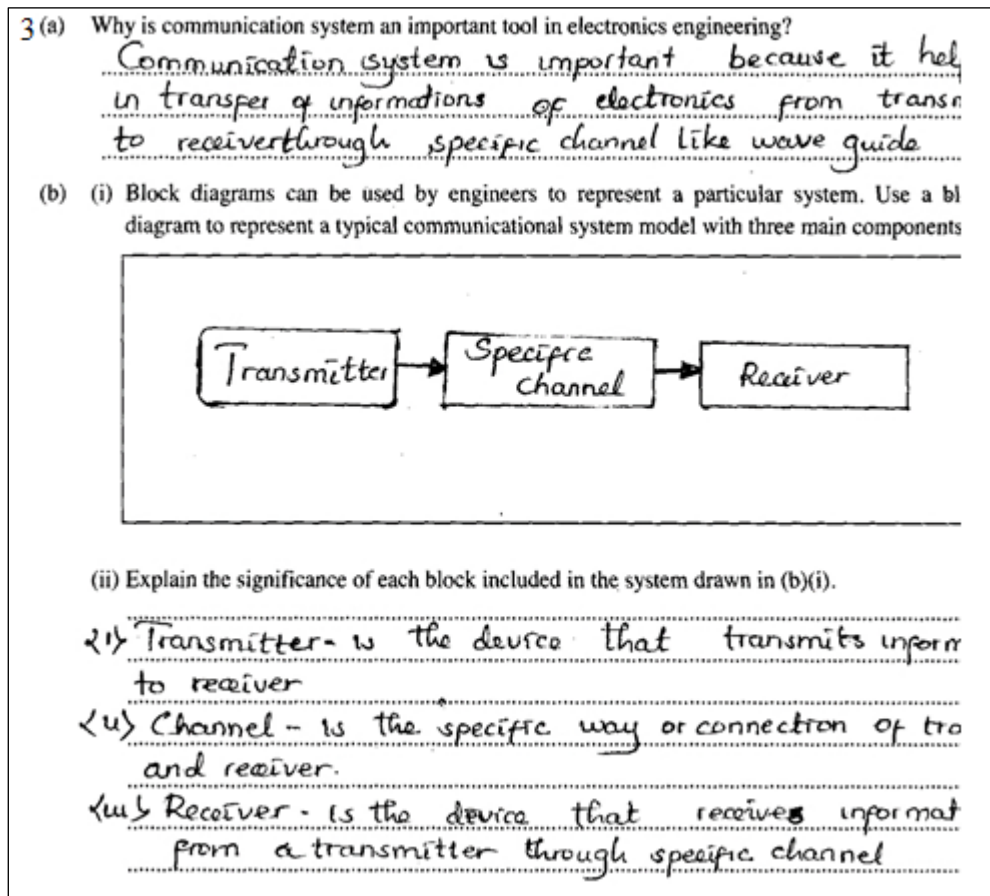 3 (a) Why is communication system an important tool in electronics engineering?
Communication system is important because it hel
in transfer of informations of electronics from transm
to receiverthrough specific channel like wave guide
(b) (i) Block diagrams can be used by engineers to represent a particular system. Use a bl
diagram to represent a typical communicational system model with three main components
Transmitter
Specific
channel
Receiver
(ii) Explain the significance of each block included in the system drawn in (b)(i).
<i> Transmitter - is the device that transmits inform
to receiver
<ii> Channel - is the specific way or connection of tra
and receiver.
<iii> Receiver - is the device that receives informat
from a transmitter through specific channel